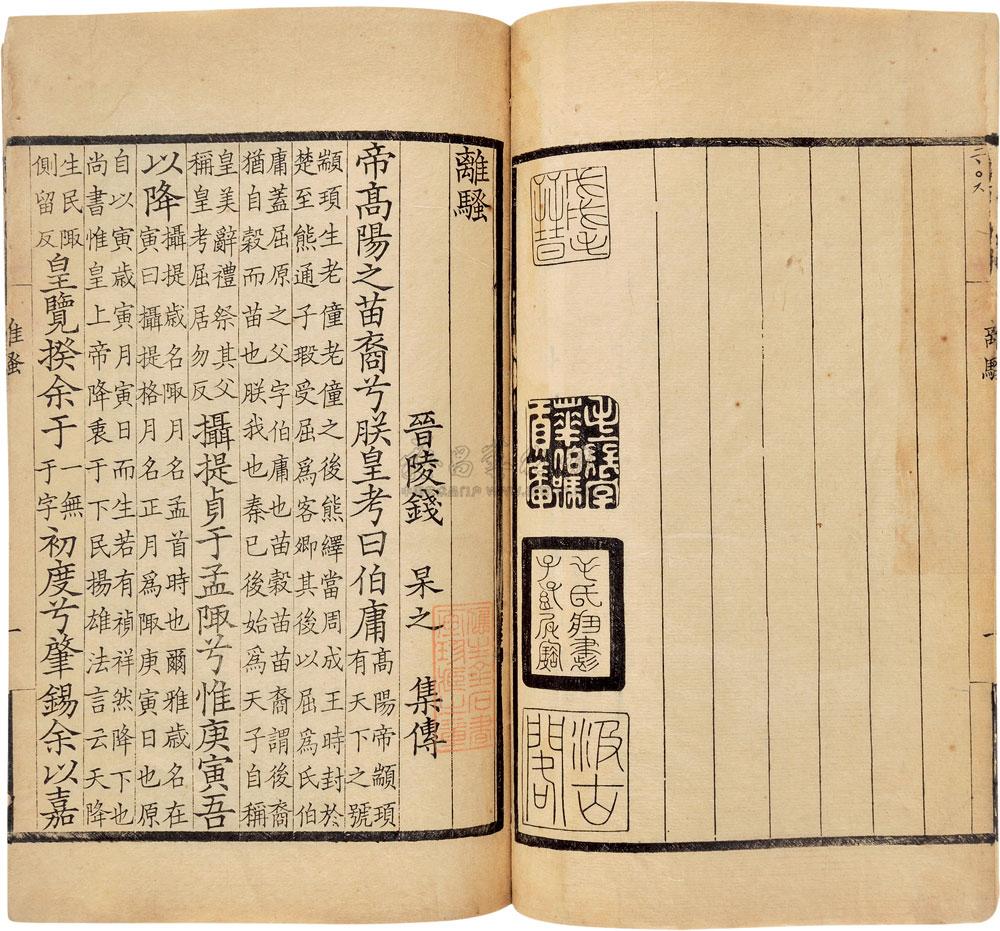 離騷
汲古閣
離騷
晉陵錢 杲之 集傳
帝髙陽之苗裔兮朕皇考曰伯庸髙陽帝顓頊有天下之號
顓頊生老僮老僮之後熊繹當周成王時封於
楚至熊通子瑕受屈爲客卿其後以屈爲氏伯
庸蓋屈原之父字伯庸也苗榖苗苗裔謂後裔
猶自榖而苗也朕我也秦已後始爲天子自稱
皇美辭禮祭其父稱皇考屈居勿反攝提貞于孟陬兮惟庚寅吾
以降攝提歲名陬月名孟首時也爾雅歲名在寅曰攝提格月名正月爲陬庚寅日也原
自以寅歲寅月寅日而生若有禎祥然降下也
尚書惟皇上帝降衷于下民揚雄法言云天降
生民陬側留反皇覽揆余于一無于字初度兮肇錫余以嘉
離騷
一